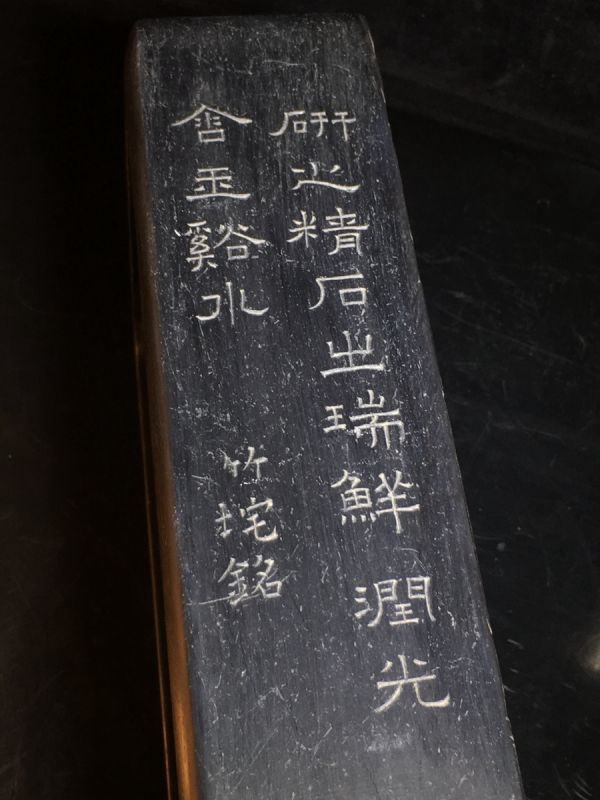 硏之精石之瑞鮮潤光
含玉谿水
竹垞銘